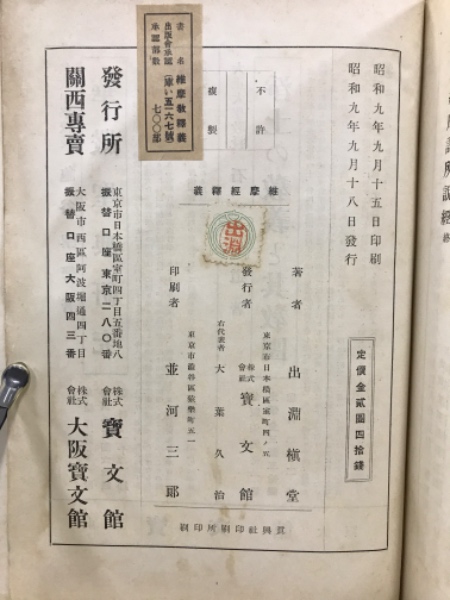 昭和九年九月十五日印刷
昭和九年九月十八日發行
定價金貳圓四拾錢
不許
複製
維摩經釋義
出淵
著者 出淵槇堂
東京市日本橋區室町四ノ五
發行者 株式會社 寶文館
右代表者 大葉久治
印刷者 並河三郎
賛興社印刷所印刷
書名 維摩經釋義
出版會承認 (庫い五二六七號)
承認部數 七〇〇部
發行所
東京市日本橋區室町四丁目五番地八
振替口座東京二八〇番
株式會社 寶文館
關西專賣
大阪市西區阿波堀通四丁目
振替口座大阪四三番
株式會社 大阪寶文館